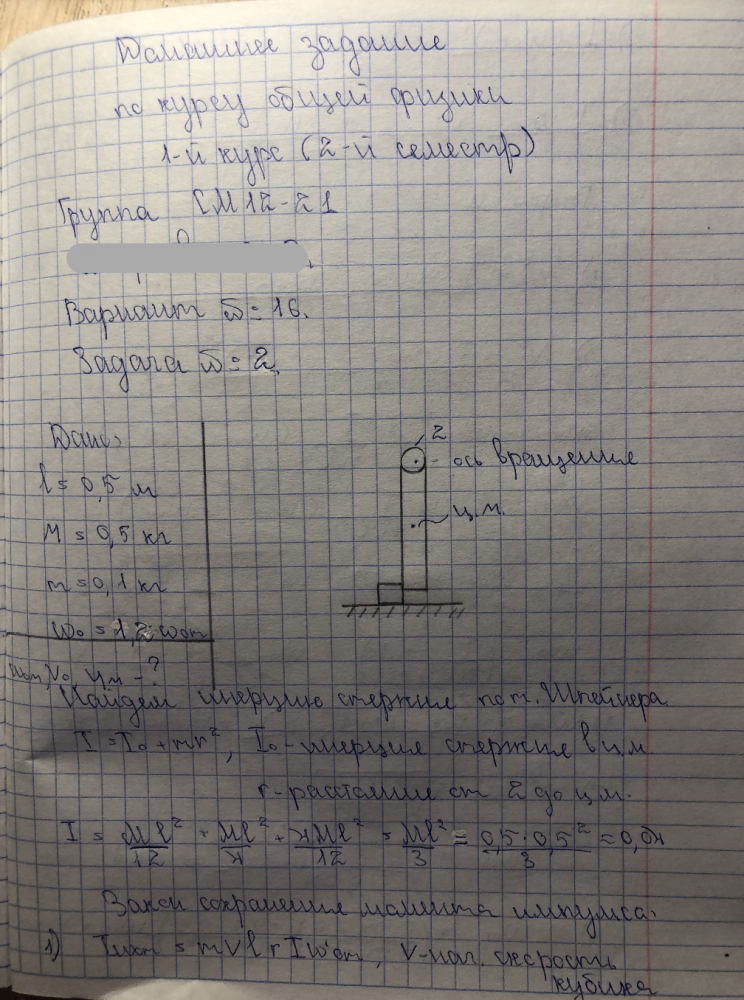 Домашнее задание
по курсу общей физики
1-й курс (2-й семестр)
Группа СМ12-21
Вариант №=16.
Задача №=2.
Дано:
l = 0,5 м
M = 0,5 кг
m = 0,1 кг
ω₀ = 1,2 ωот
ωот, V₀, - ?
z
- ось вращения
ц.м.
Найдем инерцию стержня по т. Штейнера
I = I₀ + mr², I₀ - инерция стержня в ц.м.
r - расстояние от z до ц.м.
I = Ml²/12 + Ml²/4 = Ml²/3 = 0,5·0,5²/3 = 0,04
Закон сохранения момента импульса:
1) = mVl + Iω'от, V - нач. скорость
кубика